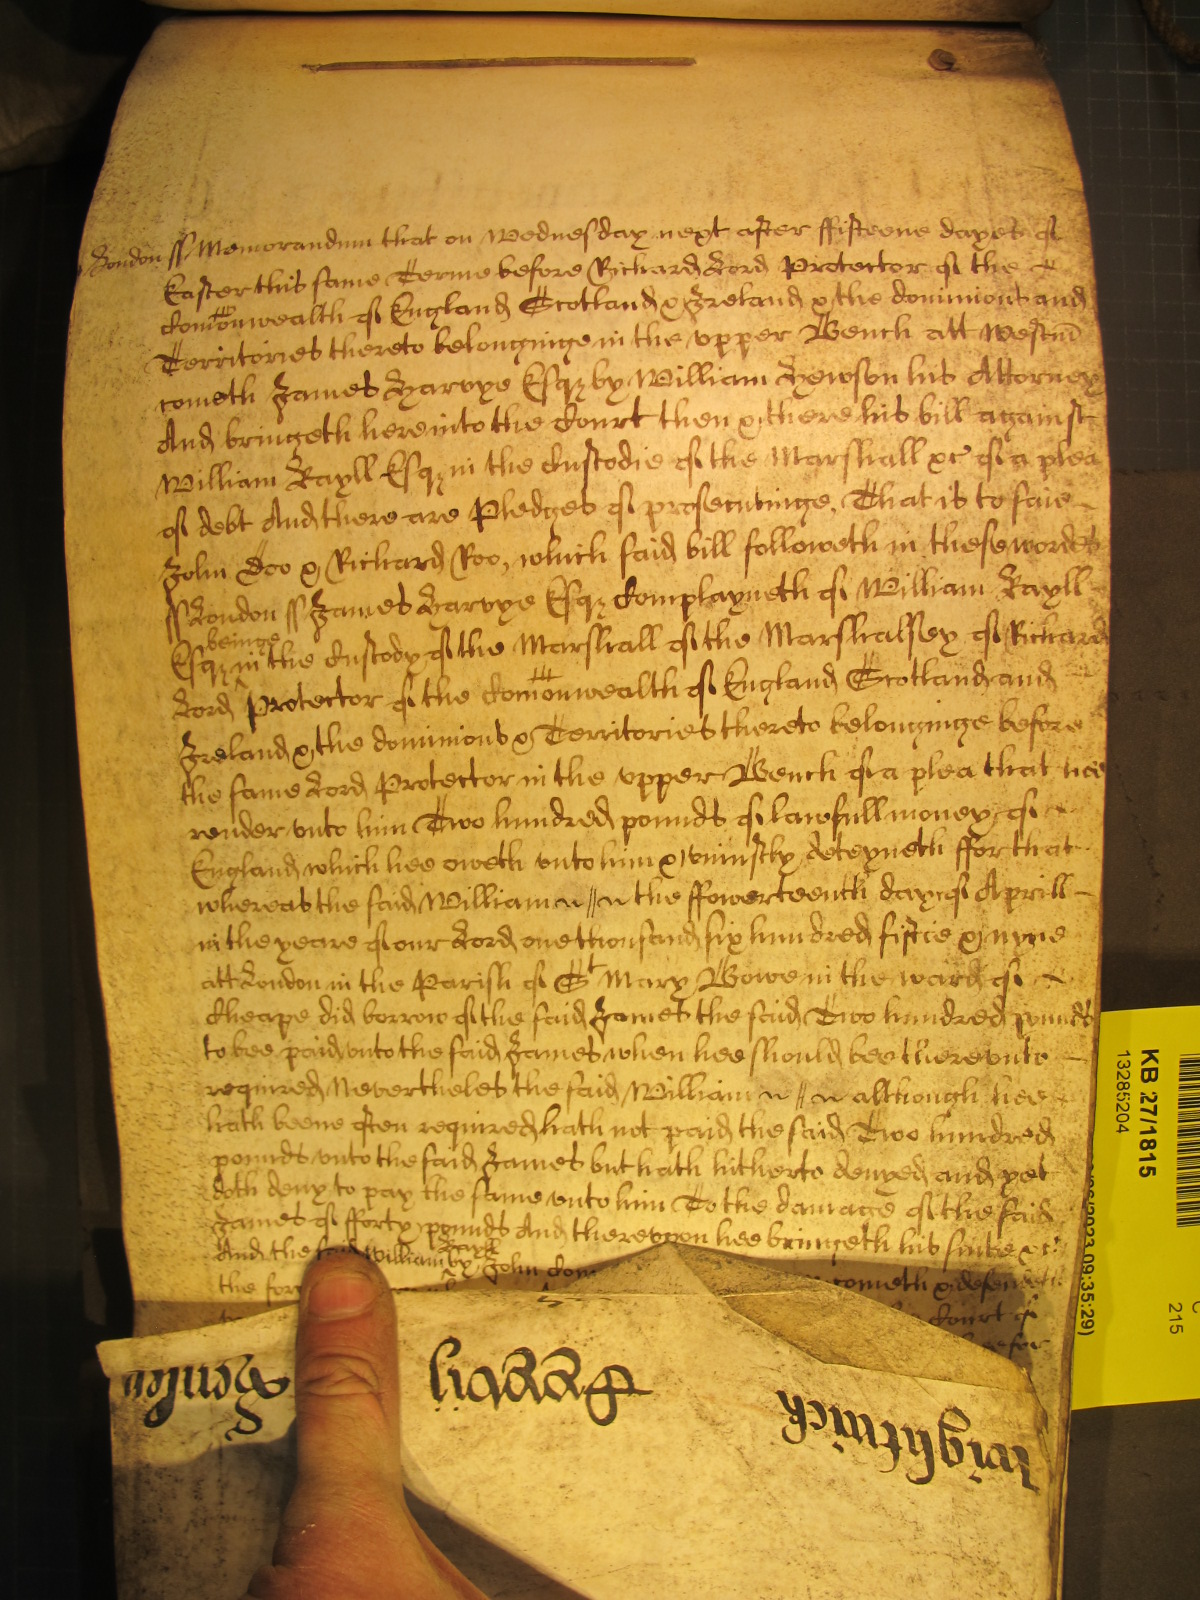 London ss Memorandum that on Wednesday next after ffifteene dayes of
Easter this same Terme before Richard Lord Protector of the
Comonwealth of England Scotland & Ireland & the dominions and
Territories thereto belonginge in the vpper Bench att Westm
cometh James Harvye Esqr by William Hewson his Attorney
And bringeth here into the Court then & there his bill against
William Rayll Esqr in the Custodie of the Marshall &c of a plea
of debt And there are Pledges of prosecutinge, That is to saie
John Doo & Richard Roo, which said bill followeth in these wordes
ss London ss James Harvye Esqr Complayneth of William Rayll
beinge
Esqr in the Custody of the Marshall of the Marshalsey of Richard
Lord Protector of the Comonwealth of England Scotland and
Ireland & the dominions & Territories thereto belonginge before
the same Lord Protector in the vpper Bench of a plea that hee
render vnto him Two hundred pounds of lawfull money of
England which hee oweth vnto him & vniustly deteyneth ffor that
whereas the said William the ffowerteenth day of Aprill
in the yeare of our Lord one thousand six hundred fiftie & nyne
att London in the Parish of St Mary Bowe in the ward of
Cheape did borrow of the said James the said Two hundred pounds
to bee paid vnto the said James when hee should bee therevnto
required Nevertheles the said William although hee
hath beene often required hath not paid the said Two hundred
pounds vnto the said James but hath hitherto denyed and yet
doth deny to pay the same vnto him To the damage of the said
James of fforty pounds And therevpon hee bringeth his suite &c
And the said William by John
cometh & defendeth
the for
Court of
KB 27/1815
13285204
09:35:29)
215